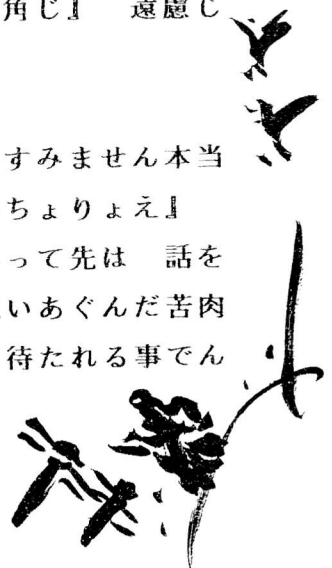 角じ』　遠慮じ
すみません本当
ちょりょえ』
って先は　話を
いあぐんだ苦肉
待たれる事でん